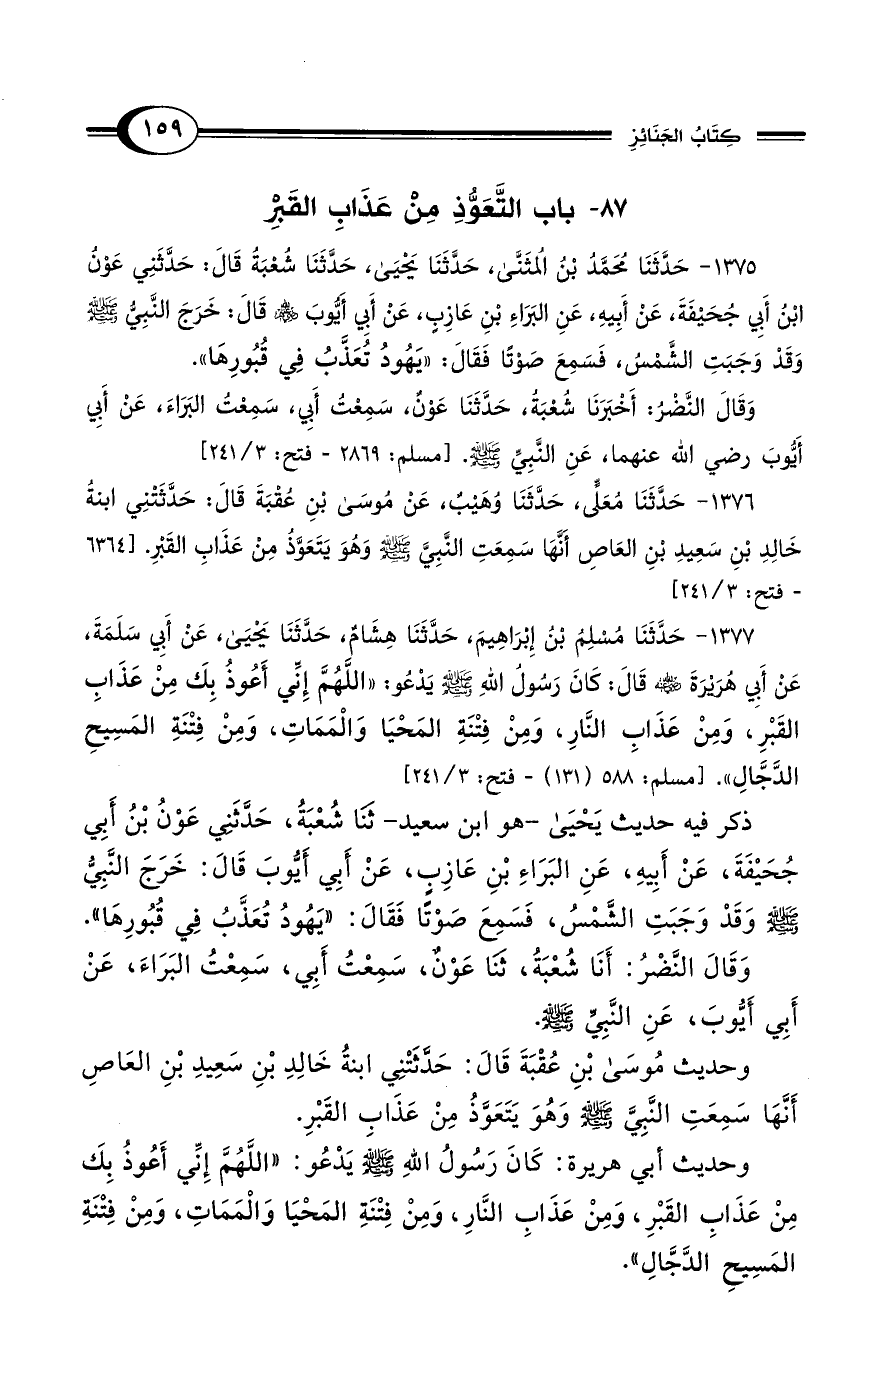 كِتَابُ الجَنَائِزِ ١٥٩
٨٧- باب التَّعَوُّذِ مِنْ عَذَابِ القَبْرِ
١٣٧٥- حَدَّثَنَا مُحَمَّدُ بْنُ الْمُثَنَّىٰ، حَدَّثَنَا يَحْيَىٰ، حَدَّثَنَا شُعْبَةُ قَالَ: حَدَّثَنِي عَوْنُ
ابْنُ أَبِي جُحَيْفَةَ، عَنْ أَبِيهِ، عَنِ البَرَاءِ بْنِ عَازِبٍ، عَنْ أَبِي أَيُّوبَ رضي الله عنه قَالَ: خَرَجَ النَّبِيُّ ﷺ
وَقَدْ وَجَبَتِ الشَّمْسُ، فَسَمِعَ صَوْتًا فَقَالَ: «يَهُودُ تُعَذَّبُ فِي قُبُورِهَا».
وَقَالَ النَّضْرُ: أَخْبَرَنَا شُعْبَةُ، حَدَّثَنَا عَوْنٌ، سَمِعْتُ أَبِي، سَمِعْتُ البَرَاءَ، عَنْ أَبِي
أَيُّوبَ رضي الله عنهما، عَنِ النَّبِيِّ ﷺ. [مسلم: ٢٨٦٩ - فتح: ٣/٢٤١]
١٣٧٦- حَدَّثَنَا مُعَلًّى، حَدَّثَنَا وُهَيْبٌ، عَنْ مُوسَىٰ بْنِ عُقْبَةَ قَالَ: حَدَّثَتْنِي ابنةُ
خَالِدِ بْنِ سَعِيدِ بْنِ العَاصِ أَنَّهَا سَمِعَتِ النَّبِيَّ ﷺ وَهُوَ يَتَعَوَّذُ مِنْ عَذَابِ القَبْرِ. [٦٣٦٤
- فتح: ٣/٢٤١]
١٣٧٧- حَدَّثَنَا مُسْلِمُ بْنُ إِبْرَاهِيمَ، حَدَّثَنَا هِشَامٌ، حَدَّثَنَا يَحْيَىٰ، عَنْ أَبِي سَلَمَةَ،
عَنْ أَبِي هُرَيْرَةَ رضي الله عنه قَالَ: كَانَ رَسُولُ اللهِ ﷺ يَدْعُو: «اللَّهُمَّ إِنِّي أَعُوذُ بِكَ مِنْ عَذَابِ
القَبْرِ، وَمِنْ عَذَابِ النَّارِ، وَمِنْ فِتْنَةِ المَحْيَا وَالْمَمَاتِ، وَمِنْ فِتْنَةِ المَسِيحِ
الدَّجَّالِ». [مسلم: ٥٨٨ (١٣١) - فتح: ٣/٢٤١]
ذكر فيه حديث يَحْيَىٰ -هو ابن سعيد- ثَنَا شُعْبَةُ، حَدَّثَنِي عَوْنُ بْنُ أَبِي
جُحَيْفَةَ، عَنْ أَبِيهِ، عَنِ البَرَاءِ بْنِ عَازِبٍ، عَنْ أَبِي أَيُّوبَ قَالَ: خَرَجَ النَّبِيُّ
ﷺ وَقَدْ وَجَبَتِ الشَّمْسُ، فَسَمِعَ صَوْتًا فَقَالَ: «يَهُودُ تُعَذَّبُ فِي قُبُورِهَا».
وَقَالَ النَّضْرُ: أَنَا شُعْبَةُ، ثَنَا عَوْنٌ، سَمِعْتُ أَبِي، سَمِعْتُ البَرَاءَ، عَنْ
أَبِي أَيُّوبَ، عَنِ النَّبِيِّ ﷺ.
وحديث مُوسَىٰ بْنِ عُقْبَةَ قَالَ: حَدَّثَتْنِي ابنةُ خَالِدِ بْنِ سَعِيدِ بْنِ العَاصِ
أَنَّهَا سَمِعَتِ النَّبِيَّ ﷺ وَهُوَ يَتَعَوَّذُ مِنْ عَذَابِ القَبْرِ.
وحديث أبي هريرة: كَانَ رَسُولُ اللهِ ﷺ يَدْعُو: «اللَّهُمَّ إِنِّي أَعُوذُ بِكَ
مِنْ عَذَابِ القَبْرِ، وَمِنْ عَذَابِ النَّارِ، وَمِنْ فِتْنَةِ المَحْيَا وَالْمَمَاتِ، وَمِنْ فِتْنَةِ
المَسِيحِ الدَّجَّالِ».